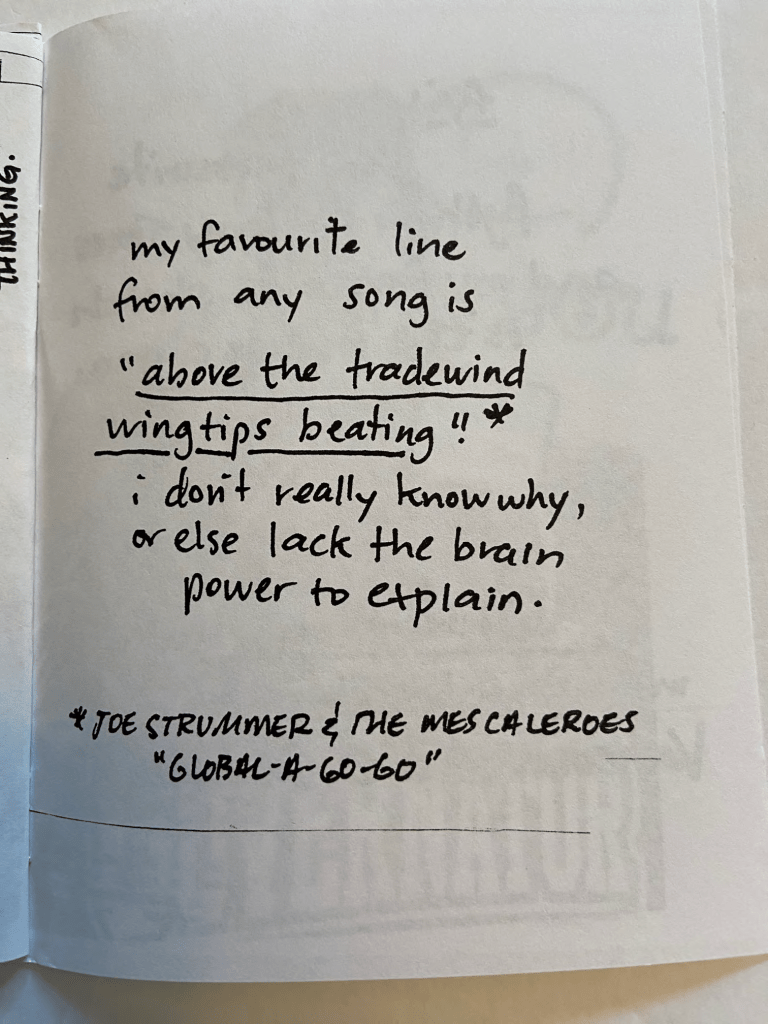 THINKING.
my favourite line
from any song is
"above the tradewind
wingtips beating"!*
i don't really know why,
or else lack the brain
power to explain.
*JOE STRUMMER & THE MESCALEROES
"GLOBAL-A-GO-GO"